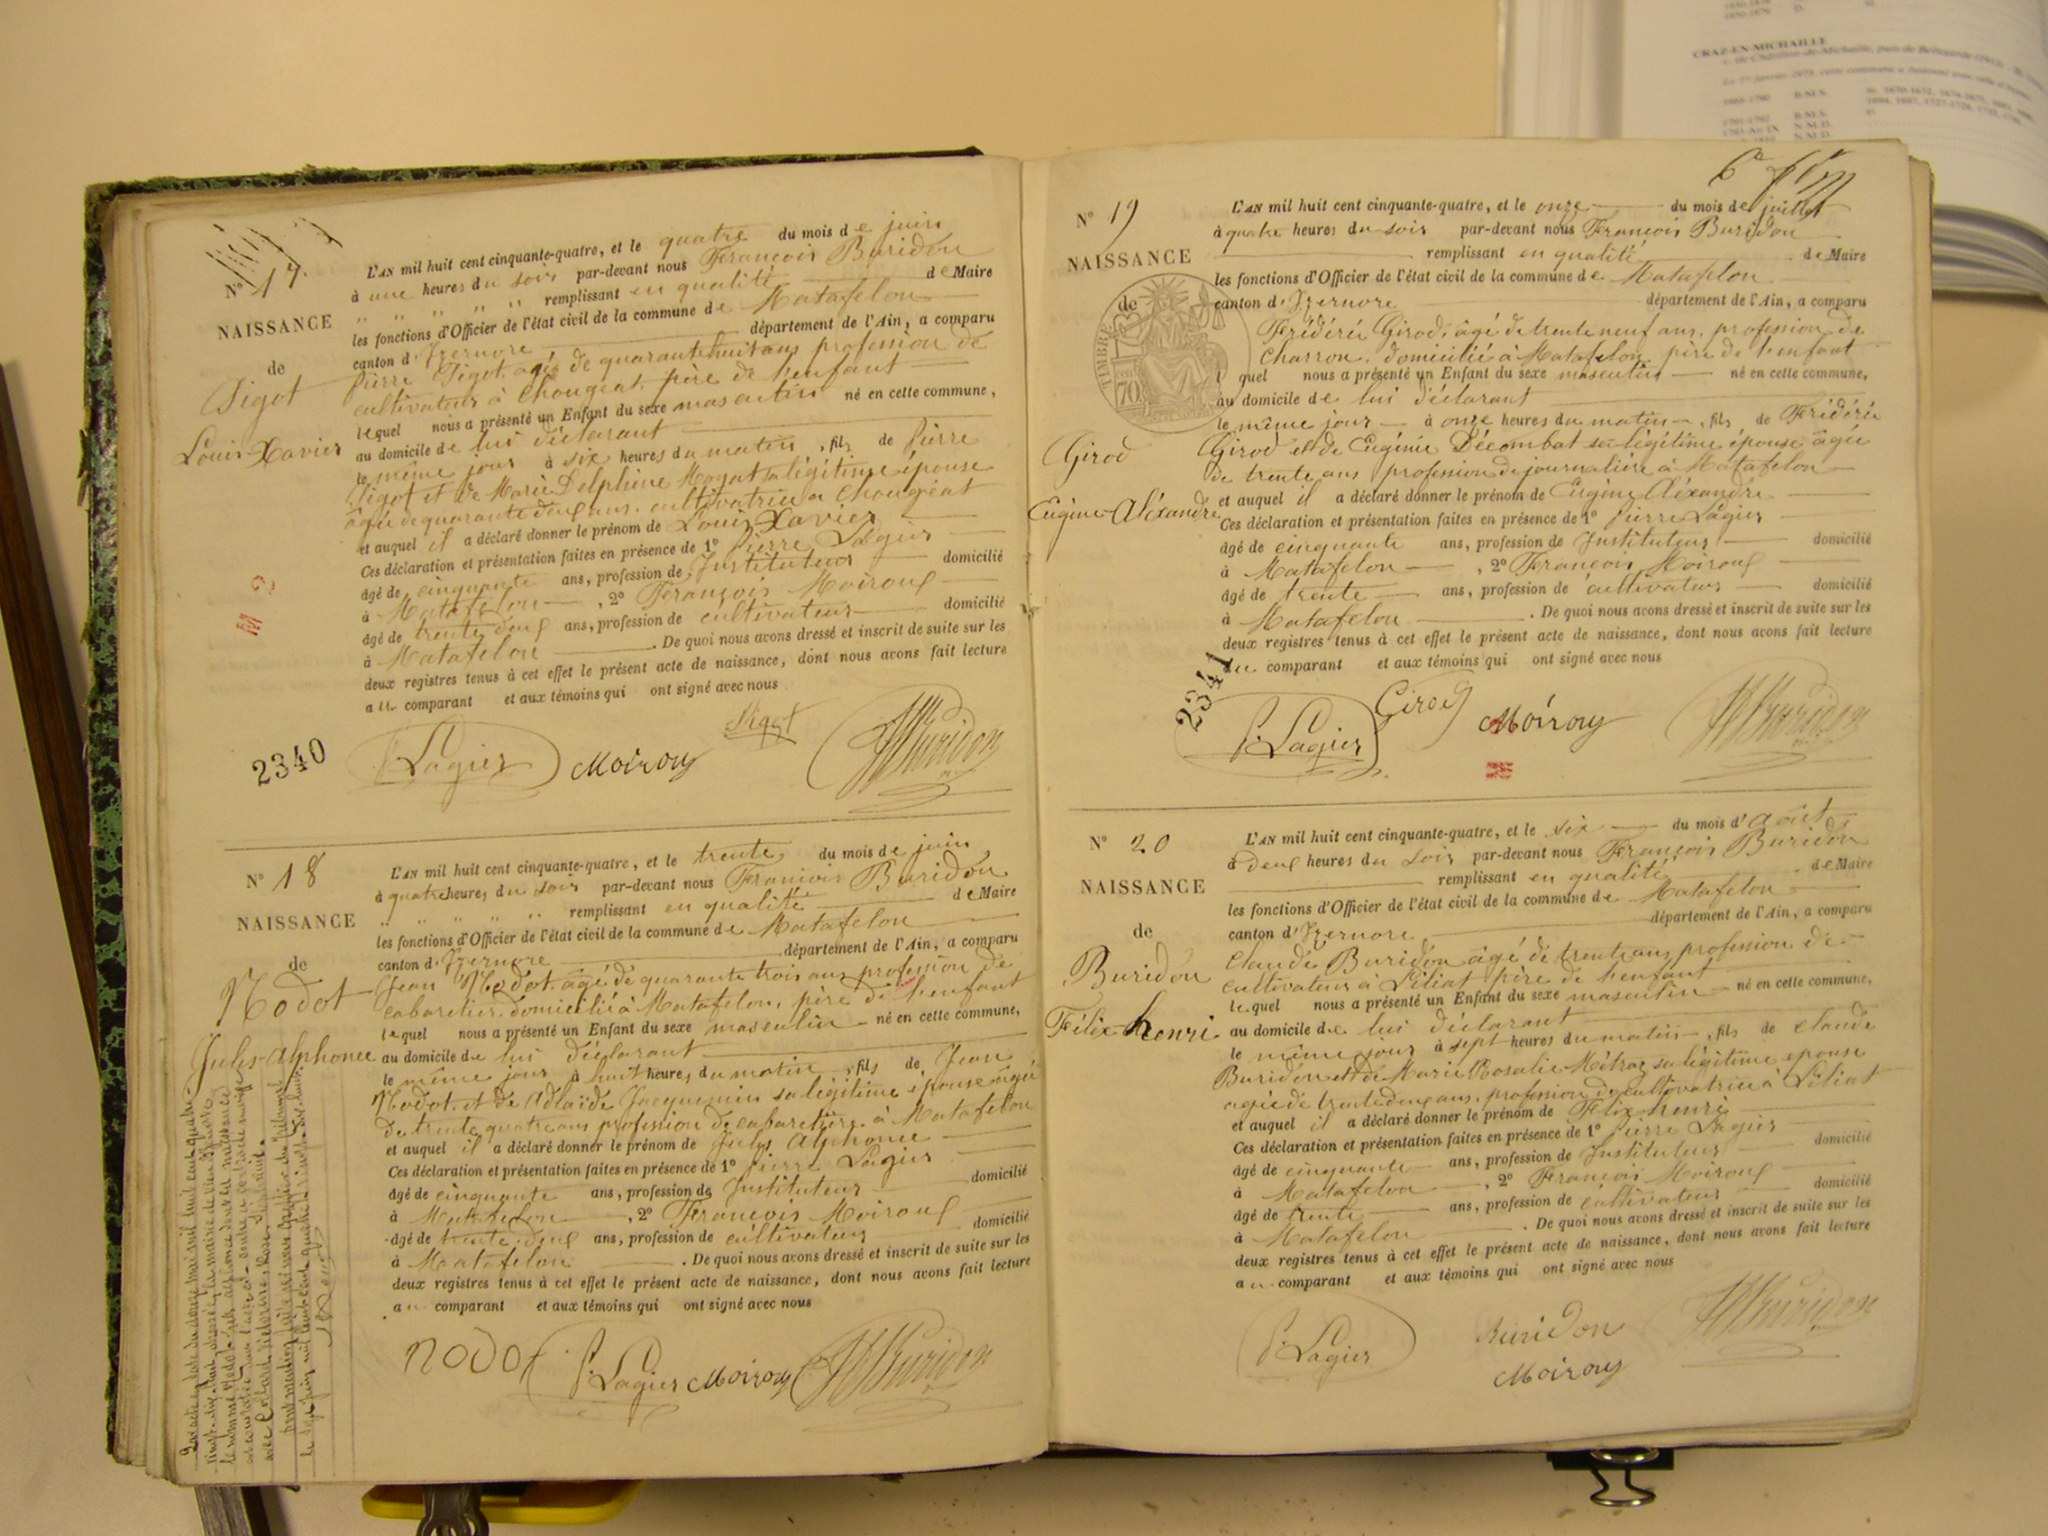 N° 17.
NAISSANCE
de
Pigot
Louis-Xavier
L'AN mil huit cent cinquante-quatre, et le quatre du mois de juin
à une heures du soir par-devant nous François Buridon
remplissant en qualité de Maire
les fonctions d'Officier de l'état civil de la commune de Matafelon
canton d'Izernore département de l'Ain, a comparu
Pierre Pigot, agé de quarante huit ans profession de
cultivateur à Chougeat, père de l'enfant
lequel nous a présenté un Enfant du sexe masculin né en cette commune,
au domicile de lui déclarant
le même jour à six heures du matin, fils de Pierre
Pigot et de Marie Delphine sa légitime épouse
âgée de quarante deux ans, cultivatrice à Chougeat
et auquel il a déclaré donner le prénom de Louis Xavier
Ces déclaration et présentation faites en présence de 1° Pierre Lagier
âgé de cinquante ans, profession de Instituteur domicilié
à Matafelon, 2° François Moiroux
âgé de trente deux ans, profession de cultivateur domicilié
à Matafelon. De quoi nous avons dressé et inscrit de suite sur les
deux registres tenus à cet effet le présent acte de naissance, dont nous avons fait lecture
au comparant et aux témoins qui ont signé avec nous
Pigot
P. Lagier Moiroux Buridon
2340
N° 18
NAISSANCE
de
Nodot
Jules-Alphonce
L'AN mil huit cent cinquante-quatre, et le trente du mois de juin
à quatre heures du soir par-devant nous François Buridon
remplissant en qualité de Maire
les fonctions d'Officier de l'état civil de la commune de Matafelon
canton d'Izernore département de l'Ain, a comparu
Jean Nodot, âgé de quarante trois ans profession de
cabaretier, domicilié à Matafelon, père de l'enfant
lequel nous a présenté un Enfant du sexe masculin né en cette commune,
au domicile de lui déclarant
le même jour à huit heures du matin, fils de Jean
Nodot et de Adlaïde Jacquemin sa légitime épouse âgée
de trente quatre ans profession de cabaretière à Matafelon
et auquel il a déclaré donner le prénom de Jules Alphonce
Ces déclaration et présentation faites en présence de 1° Pierre Lagier
âgé de cinquante ans, profession de Instituteur domicilié
à Matafelon, 2° François Moiroux
âgé de trente deux ans, profession de cultivateur domicilié
à Matafelon. De quoi nous avons dressé et inscrit de suite sur les
deux registres tenus à cet effet le présent acte de naissance, dont nous avons fait lecture
au comparant et aux témoins qui ont signé avec nous
Nodot P. Lagier Moiroux Buridon
N° 19
NAISSANCE
de
TIMBRE
70
Girod
Eugène-Aléxandre
L'AN mil huit cent cinquante-quatre, et le onze du mois de juillet
à quatre heures du soir par-devant nous François Buridon
remplissant en qualité de Maire
les fonctions d'Officier de l'état civil de la commune de Matafelon
canton d'Izernore département de l'Ain, a comparu
Frédéric Girod, âgé de trente neuf ans, profession de
Charron, domicilié à Matafelon, père de l'enfant
lequel nous a présenté un Enfant du sexe masculin né en cette commune,
au domicile de lui déclarant
le même jour à onze heures du matin, fils de Frédéric
Girod et de Eugénie Décombat sa légitime épouse âgée
de trente ans profession de journalière à Matafelon
et auquel il a déclaré donner le prénom de Eugène Aléxandre
Ces déclaration et présentation faites en présence de 1° Pierre Lagier
âgé de cinquante ans, profession de Instituteur domicilié
à Matafelon, 2° François Moiroux
âgé de trente ans, profession de cultivateur domicilié
à Matafelon. De quoi nous avons dressé et inscrit de suite sur les
deux registres tenus à cet effet le présent acte de naissance, dont nous avons fait lecture
au comparant et aux témoins qui ont signé avec nous
2341
P. Lagier Girod Moiroux Buridon
N° 20
NAISSANCE
de
Buridon
Félix-henri
L'AN mil huit cent cinquante-quatre, et le six du mois d'août
à deux heures du soir par-devant nous François Buridon
remplissant en qualité de Maire
les fonctions d'Officier de l'état civil de la commune de Matafelon
canton d'Izernore département de l'Ain, a comparu
Claude Buridon âgé de trente ans, profession de
cultivateur à Siliat père de l'enfant
lequel nous a présenté un Enfant du sexe masculin né en cette commune,
au domicile de lui déclarant
le même jour à sept heures du matin, fils de Claude
Buridon et de Marie Rosalie Métraz sa légitime épouse
agée de trente deux ans, profession de cultivatrice à Siliat
et auquel il a déclaré donner le prénom de Félix henri
Ces déclaration et présentation faites en présence de 1° Pierre Lagier
âgé de cinquante ans, profession de Instituteur domicilié
à Matafelon, 2° François Moiroux
âgé de trente ans, profession de cultivateur domicilié
à Matafelon. De quoi nous avons dressé et inscrit de suite sur les
deux registres tenus à cet effet le présent acte de naissance, dont nous avons fait lecture
au comparant et aux témoins qui ont signé avec nous
P. Lagier Buridon Buridon
Moiroux
CRAZ-EN-MICHAILLE